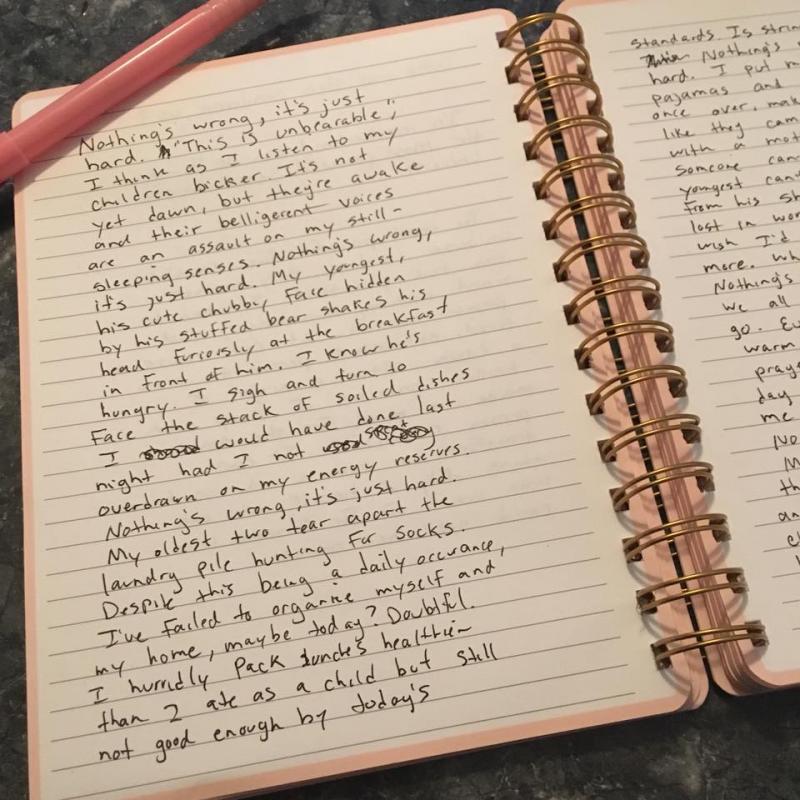 Nothing's wrong, it's just
hard. "This is unbearable,"
I think as I listen to my
children bicker. It's not
yet dawn, but they're awake
and their belligerent voices
are an assault on my still-
sleeping senses. Nothing's wrong,
it's just hard. My youngest,
his cute chubby face hidden
by his stuffed bear shakes his
head furiously at the breakfast
in front of him. I know he's
hungry. I sigh and turn to
face the stack of soiled dishes
I would have done last
night had I not
overdrawn on my energy reserves.
Nothing's wrong, it's just hard.
My oldest two tear apart the
laundry pile hunting for socks.
Despite this being a daily occurance,
I've failed to organize myself and
my home, maybe today? Doubtful.
I hurridly pack lunches healthier
than I ate as a child but still
not good enough by today's
standards. Is
Nothing's
hard. I put
pajamas and
once over,
like they
with a
someone
youngest
from his
lost in
wish I'd
more.
Nothing's
we all
go.
warm
day
me